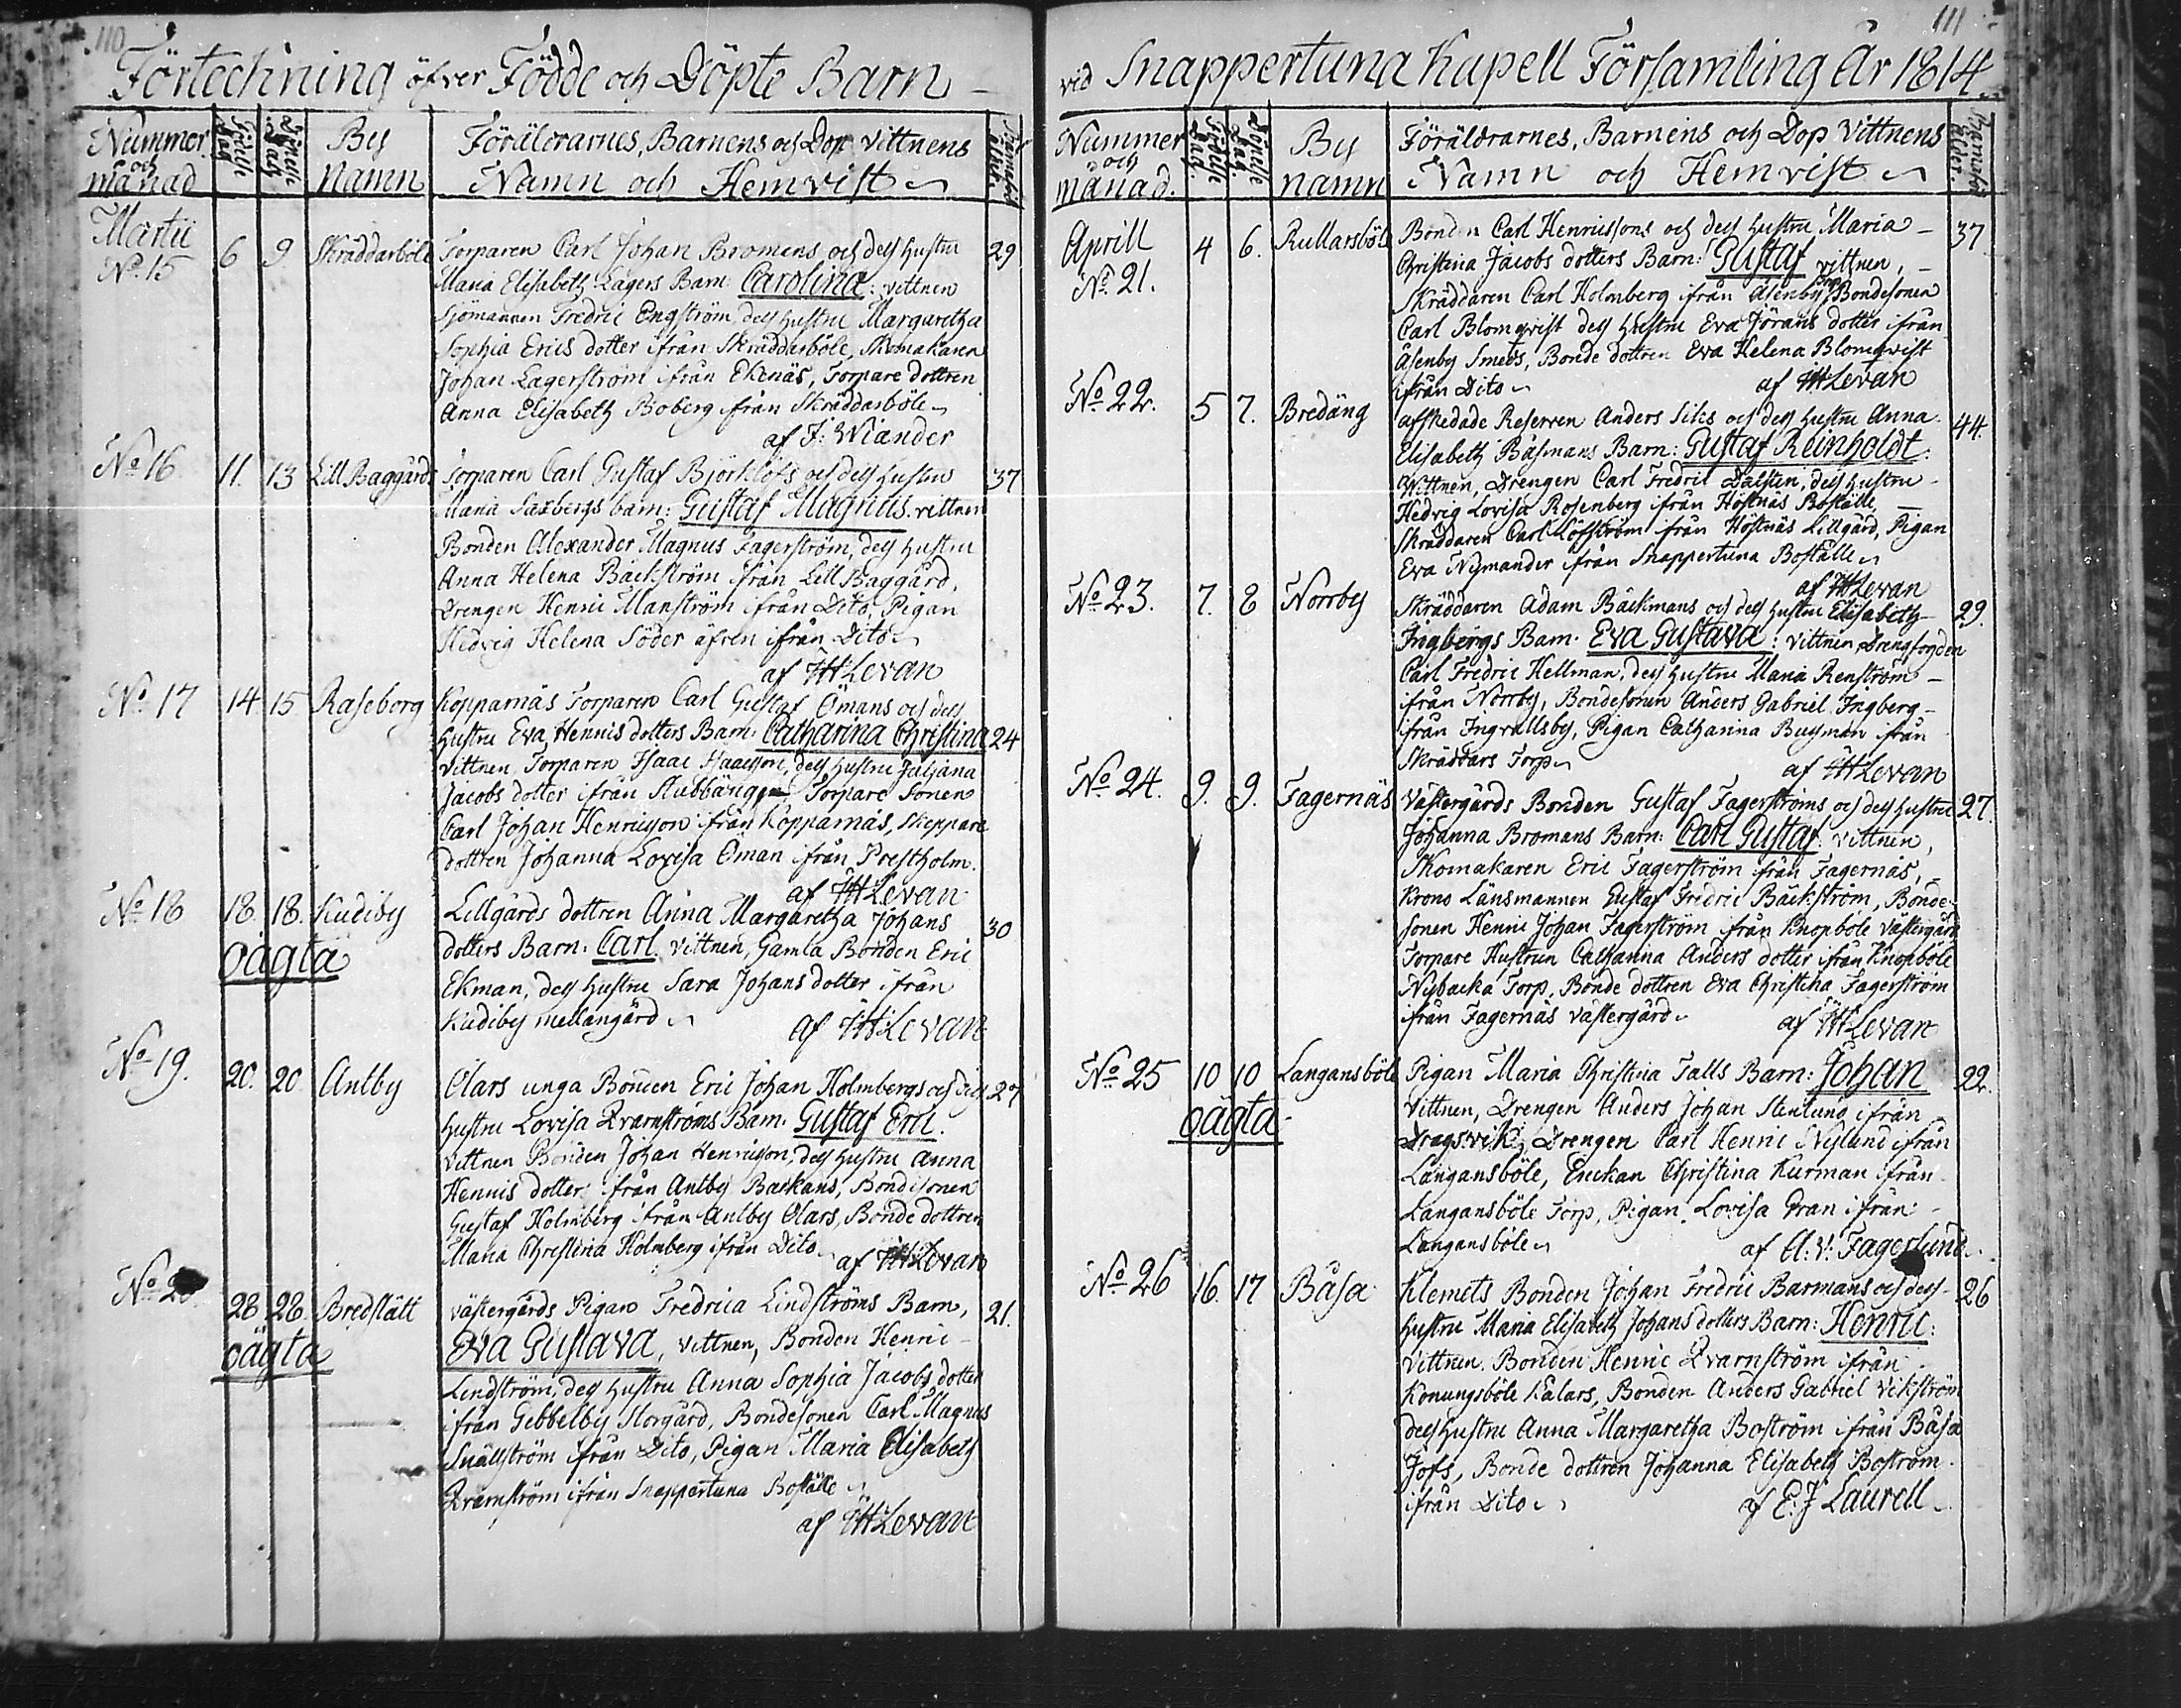 110
Förteckning öfver Födde och Döpte Barn
Nummer och månad
Födelse Dag
Döpelse Dag
By Namn
Föräldrarnes, Barnens och Dop Vittnens
Namn och Hemvist
Barnaföd. ålder
Martii
No. 15 6 9 Skräddarböle Torparen Carl Johan Bromans och dess hustru 29
Maria Elisabeth Lagers Barn: Carolina: vittnen
Sjömannen Fredric Engström, dess hustru Margaretha
Sophia Erics dotter ifrån Skräddarböle, Skomakaren
Johan Lagerström ifrån Ekenäs, Torpare dottren
Anna Elisabeth Boberg ifrån Skräddarböle
af J: Wiander
No 16 11. 13 Lill Baggård Torparen Carl Gustaf Björklöfs och dess hustru 37
Maria Saxbergs barn: Gustaf Magnus. vittnen
Bonden Alexander Magnus Fagerström, dess hustru
Anna Helena Bäckström ifrån Lill Baggård,
Drengen Henric Manström ifrån Dito, Pigan
Hedvig Helena Söder äfven ifrån Dito
af Levan
No 17 14. 15. Raseborg Kopparnäs Torparen Carl Gustaf Ömans och dess
hustru Eva Henrics dotters Barn: Catharina Christina 24
Vittnen Torparen Isaac Isaacsson, dess hustru Juljana
Jacobs dotter ifrån Stubbäng Torpare Sonen
Carl Johan Henricsson ifrån Kopparnäs, Skeppare
dottren Johanna Lovisa Öman ifrån Prestholm.
af Levan
No 18 18. 18. Kudiby Lillgårds dottren Anna Margaretha Johans 30
oägta dotters Barn: Carl. vittnen, Gamla Bonden Eric
Ekman, dess hustru Sara Johans dotter ifrån
Kudiby mellangård
af Levan
No 19. 20. 20. Antby Olars unga Bonden Eric Johan Holmbergs och dess 27
hustru Lovisa Qvarnströms Barn: Gustaf Eric.
Vittnen Bonden Johan Henricsson, dess hustru Anna
Henrics dotter ifrån Antby Backans, Bondesonen
Gustaf Holmberg ifrån Antby Olars, Bonde dottren
Maria Christina Holmberg ifrån Dito
af Levan
No 28. 28. Bredslätt västergårds Pigan Fredrica Lindströms Barn, 21.
oägta Eva Gustava, vittnen, Bonden Henric
Lindström, dess hustru Anna Sophia Jacobs dotter
ifrån Gebbelby Storgård, Bondesonen Carl Magnus
Snällström ifrån Dito, Pigan Maria Elisabeth
Qvarnström ifrån Snappertuna Boställe
af Levan
111
vid Snappertuna Kapell Församling År 1814
Nummer och månad.
Födelse Dag.
Döpelse Dag.
By namn
Föräldrarnes, Barnens och Dop Vittnens
Namn och Hemvist
Barnaföd. ålder.
Aprill
No. 21. 4 6. Rullarsböle Bonden Carl Henricssons och dess hustru Maria 37
Christina Jacobs dotters Barn: Gustaf vittnen,
Skräddaren Carl Holmberg ifrån Åsenby, Bondesonen
Carl Blomqvist dess hustru Eva Jörans dotter ifrån
Åsenby Smeds, Bonde dottren Eva Helena Blomqvist
ifrån Dito
af Levan
No 22. 5 7. Bredäng afskedade Reserven Anders Siks och dess hustru Anna 44.
Elisabeth Båsmans Barn: Gustaf Reinholdt.
Wittnen, Drengen Carl Fredric Dalsten, dess hustru
Hedvig Lovisa Rosenberg ifrån Höstnäs Boställe,
Skräddaren Carl Löfström ifrån Höstnäs Lillgård, Pigan
Eva Nymander ifrån Snappertuna Boställe
af Levan
No 23. 7. 8 Norrby Skräddaren Adam Bäckmans och dess hustru Elisabeth 29.
Ingbergs Barn. Eva Gustava: Vittnen Drengfogden
Carl Fredric Hellman, dess hustru Maria Renström
ifrån Norrby, Bondesonen Anders Gabriel Ingberg
ifrån Ingvallsby, Pigan Catharina Busman ifrån
Skräddars Torp
af Levan
No 24. 9. 9. Fagernäs Västergårds Bonden Gustaf Fagerströms och dess hustru 27.
Johanna Bromans Barn: Carl Gustaf: vittnen,
Skomakaren Eric Fagerström ifrån Fagernäs,
Krono Länsmannen Gustaf Fredric Bäckström, Bonde
sonen Henric Johan Fagerström ifrån Knopböle Västergård
Torpare Hustrun Catharina Anders dotter ifrån Knopböle
Nybacka Torp, Bonde dottren Eva Christina Fagerström
ifrån Fagernäs västergård
af Levan
No 25 10 10 Langansböle Pigan Maria Christina Falls Barn: Johan 22.
oägta Vittnen, Drengen Anders Johan Stenlund ifrån
Dragsvik, Drengen Carl Henric Nylund ifrån
Langansböle, Enckan Christina Kurman ifrån
Langansböle Torp, Pigan Lovisa Gran ifrån
Langansböle
af A: V: Fagerlund
No 26 16. 17 Båsa Klemets Bonden Johan Fredric Barmans och dess 26
hustru Maria Elisabeth Johans dotters Barn: Henric:
Vittnen. Bonden Henric Qvarnström ifrån
Konungsböle Kalars, Bonden Anders Gabriel Vikström
dess hustru Anna Margaretha Boström ifrån Båsa
Jofs, Bonde dottren Johanna Elisabeth Boström
ifrån Dito
af E. J Laurell